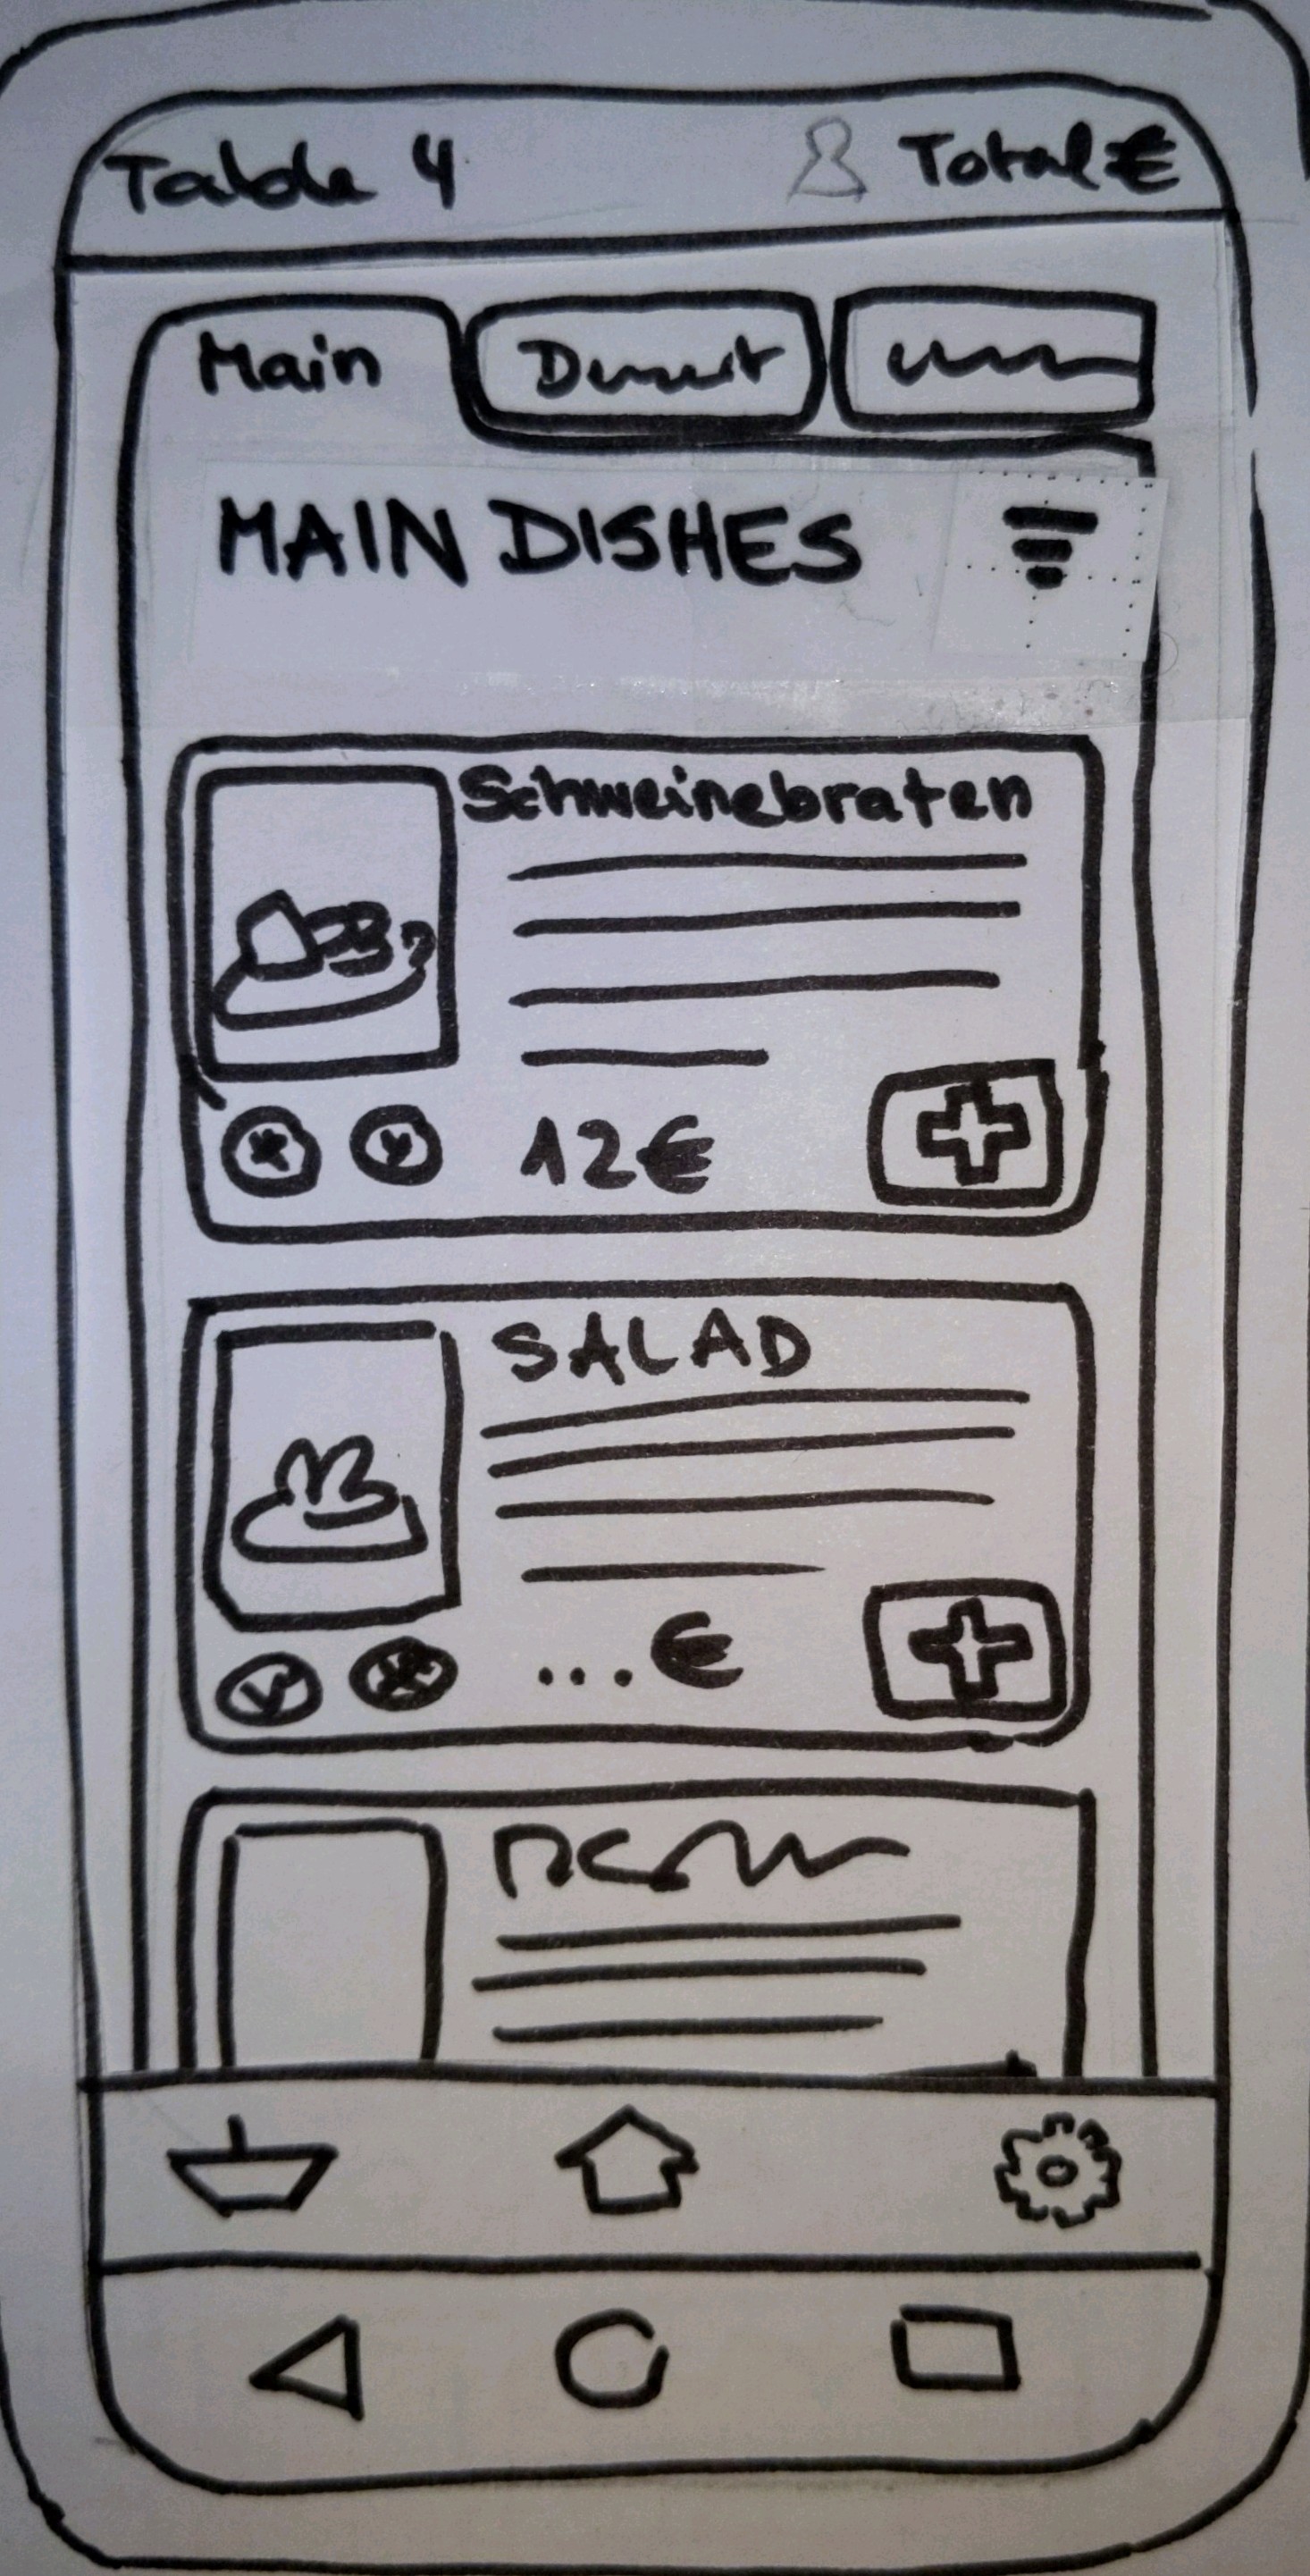 Table 4 Total €
Main
MAIN DISHES
Schweinebraten
12€
SALAD
...€